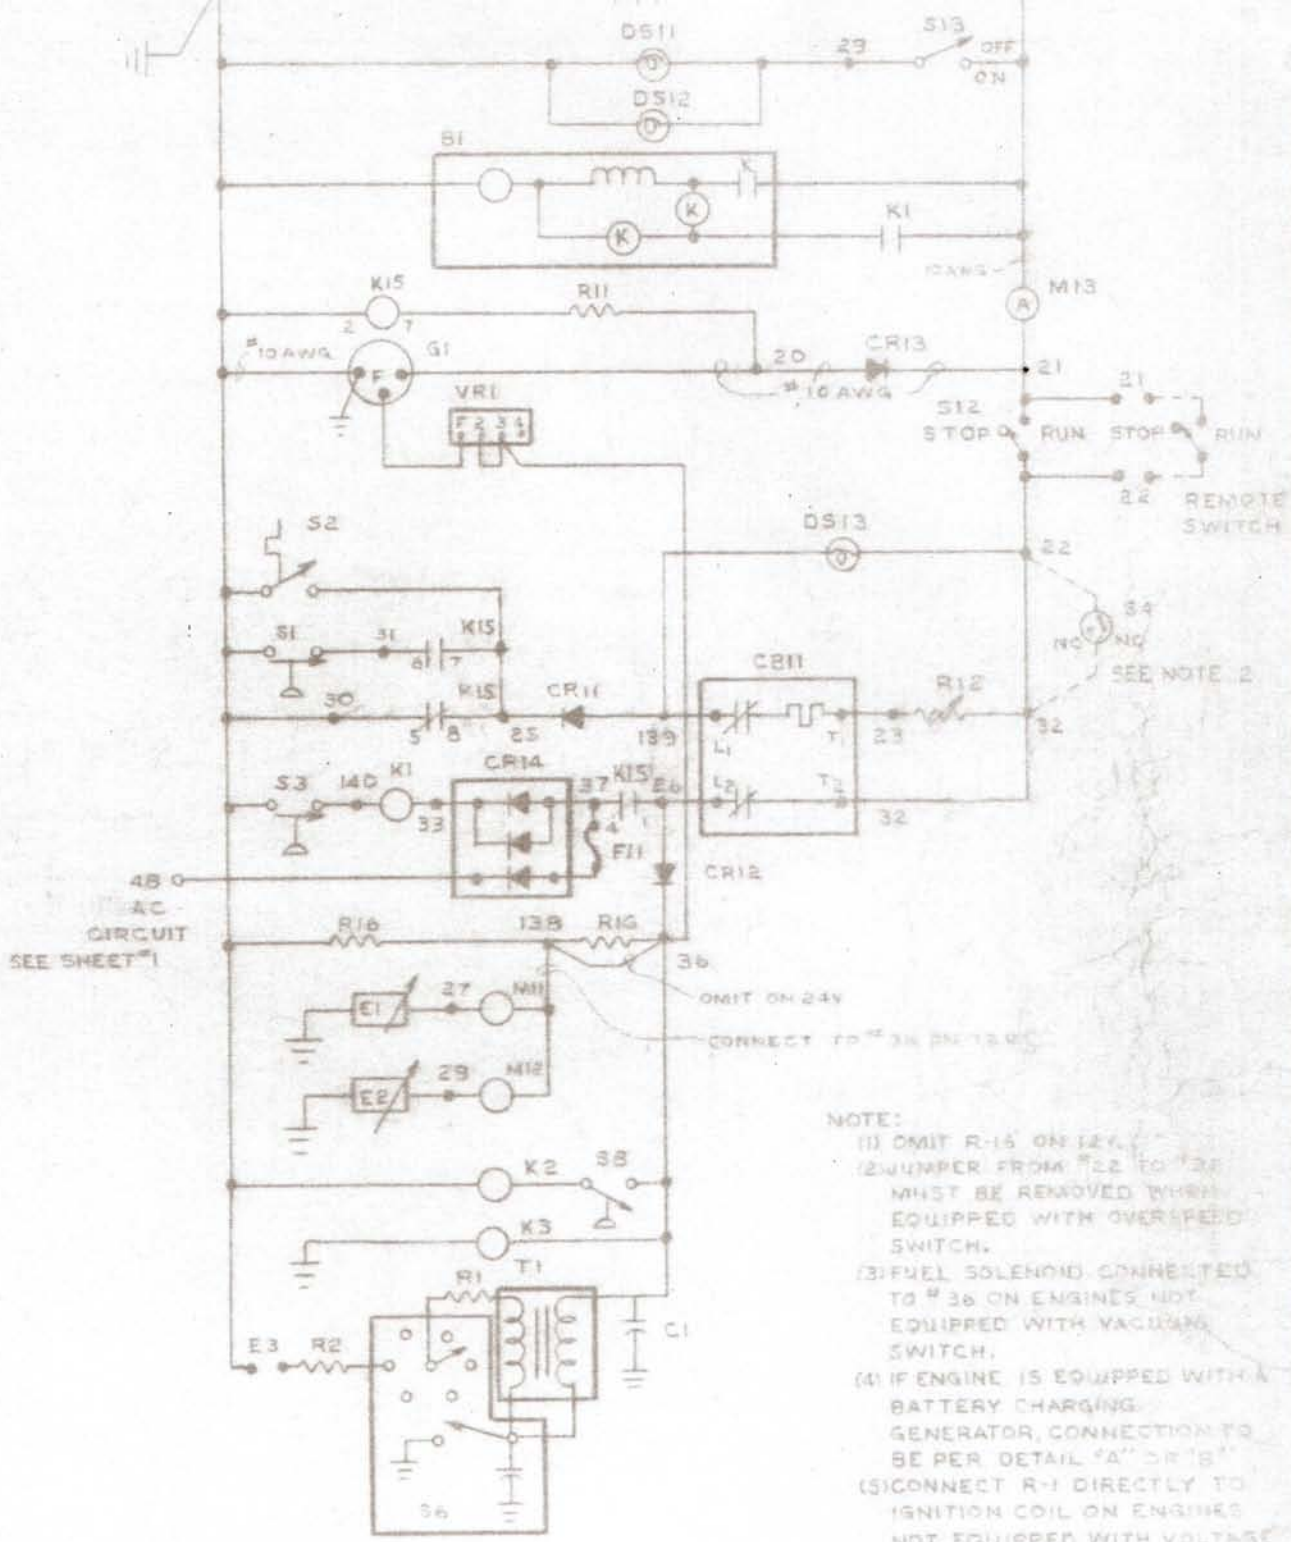 DS11
29
S13
OFF
ON
DS12
B1
K
K
K
K1
10 AWG
M13
A
K15
R11
2 7
#10 AWG
G1
F
20
CR13
#10 AWG
21
VR1
F 2 3 4
S12
STOP
RUN
21
STOP
RUN
22
REMOTE
SWITCH
S2
DS13
22
S4
NC
NC
SEE NOTE 2
S1
31
K15
6 7
CB11
R12
30
K15
CR11
5 8
25
139
L1
T1
23
32
CR14
S3
140
K1
33
37
K15
E6
4
1
L2
T2
32
F11
CR12
48
AC
CIRCUIT
SEE SHEET #1
R16
138
R16
36
OMIT ON 24V
CONNECT TO
E1
27
M11
E2
29
M12
K2
S8
K3
T1
R1
C1
E3
R2
S6
NOTE:
(1) OMIT R-15 ON
(2) JUMPER FROM #22 TO
MUST BE REMOVED WHEN
EQUIPPED WITH OVERSPEED
SWITCH.
(3) FUEL SOLENOID CONNECTED
TO #36 ON ENGINES NOT
EQUIPPED WITH VACUUM
SWITCH.
(4) IF ENGINE IS EQUIPPED WITH A
BATTERY CHARGING
GENERATOR, CONNECTION TO
BE PER DETAIL "A" OR "B"
(5) CONNECT R-1 DIRECTLY TO
IGNITION COIL ON ENGINES
NOT EQUIPPED WITH VOLTAGE